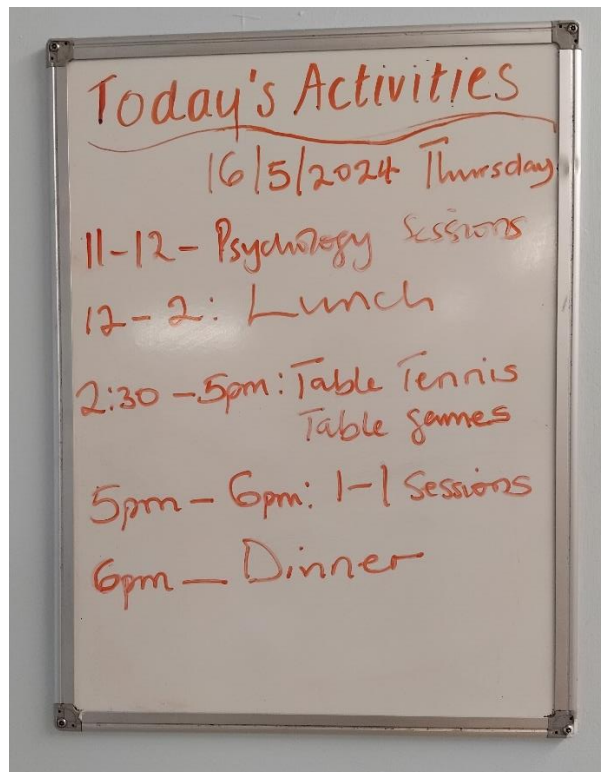 Today's Activities
16/5/2024 Thursday
11-12 - Psychology Sessions
12 - 2: Lunch
2:30 - 5pm: Table Tennis
Table games
5pm - 6pm: 1-1 Sessions
6pm - Dinner